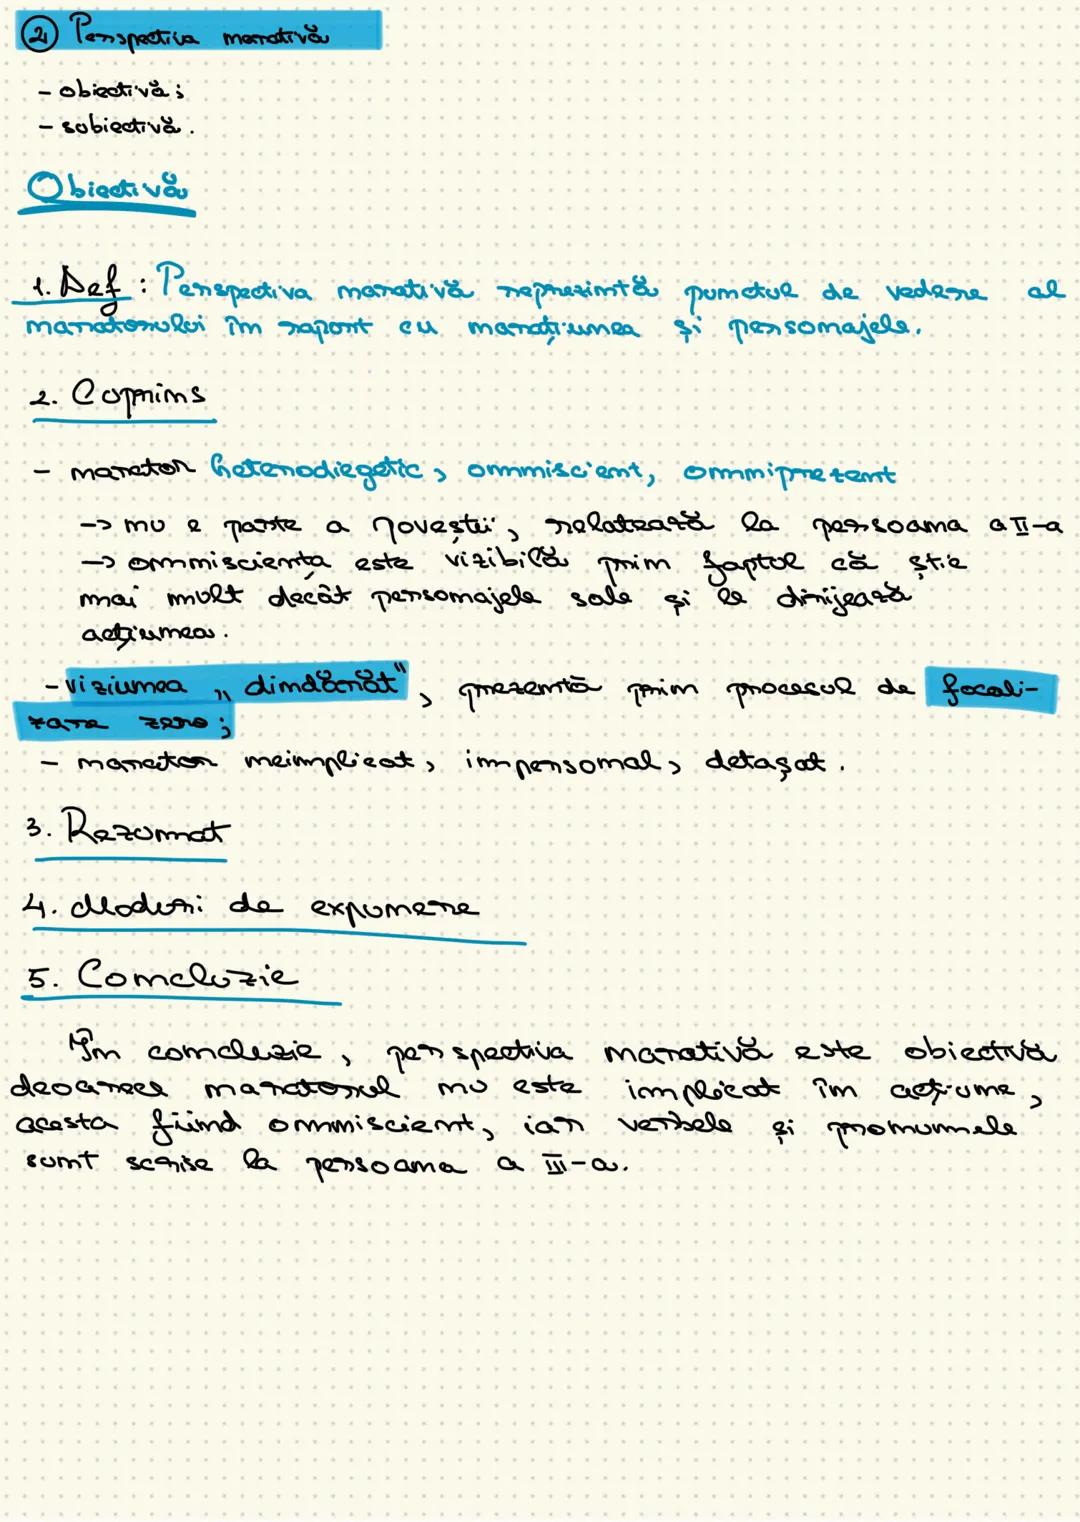 2 Perspectiva narativă
- obiectivă;
- subiectivă.
Obiectivă
1. Def: Perspectiva narativă reprezintă punctul de vedere al
naratorului în raport cu narațiunea și personajele.
2. Cuprins
- narator heterodiegetic, omniscient, omniprezent
-> nu e parte a poveștii, relatează la persoana a II-a
-> omnisciența este vizibilă prin faptul că știe
mai mult decât personajele sale și le dirijează
acțiunea.
- viziunea „dindărăt", prezentă prin procesul de focali-
zare zero;
- narator neimplicat, impersonal, detașat.
3. Rezumat
4. Moduri de expunere
5. Concluzie
În concluzie, perspectiva narativă este obiectivă
deoarece naratorul nu este implicat în acțiune,
acesta fiind omniscient, iar verbele și pronumele
sunt scrise la persoana a III-a.